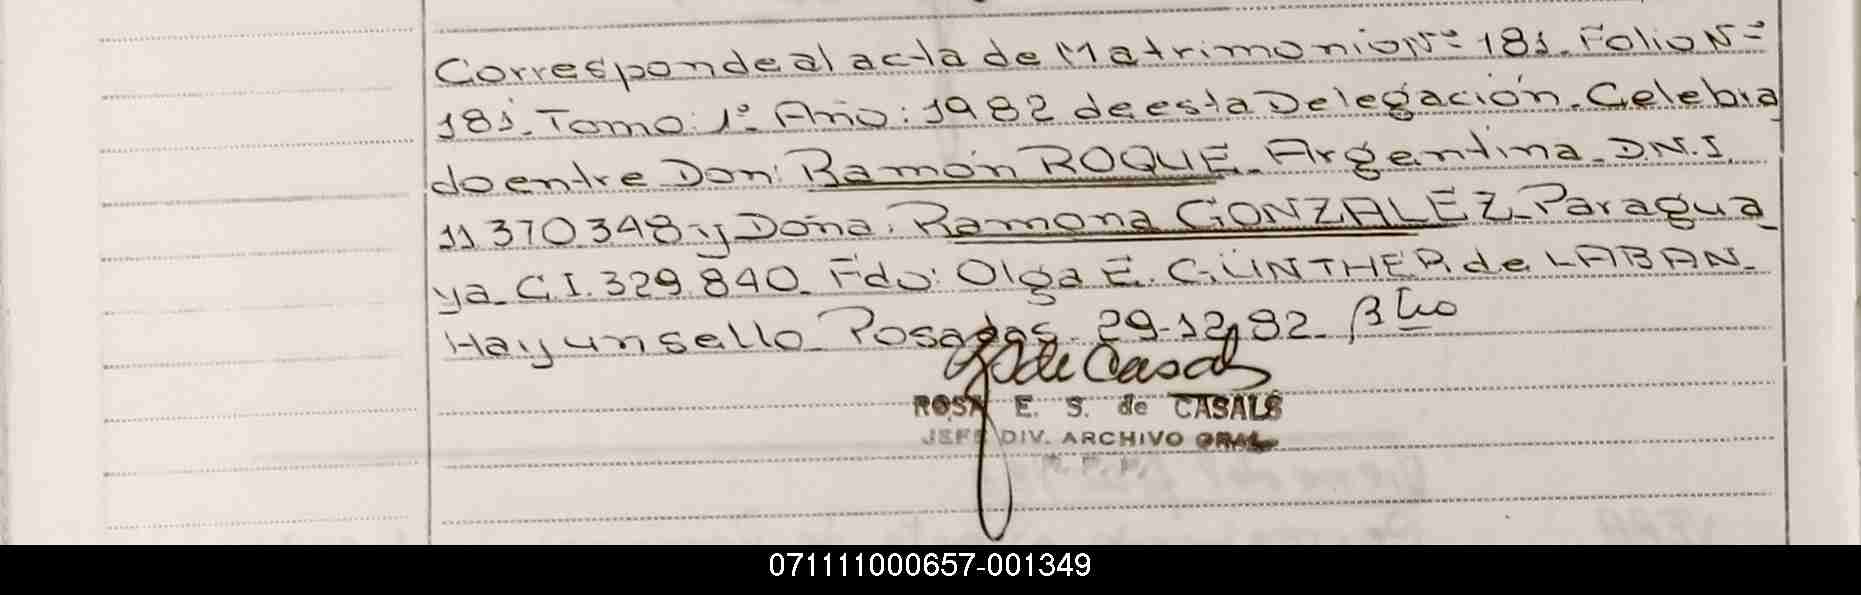 Corresponde al acta de Matrimonio Nº 181. Folio Nº
181. Tomo: 1º. Año: 1982 de esta Delegación. Celebra
do entre Don: Ramón ROQUE. Argentina. D.N.I.
11370348 y Doña. Ramona GONZALEZ. Paragua
ya. C.I. 329.840. Fdo: Olga E. GÜNTHER de LABAN.
Hay un sello. Posadas. 29-12-82.
de Casals
ROSA E. S. de CASALS
JEFE DIV. ARCHIVO GRAL
071111000657-001349